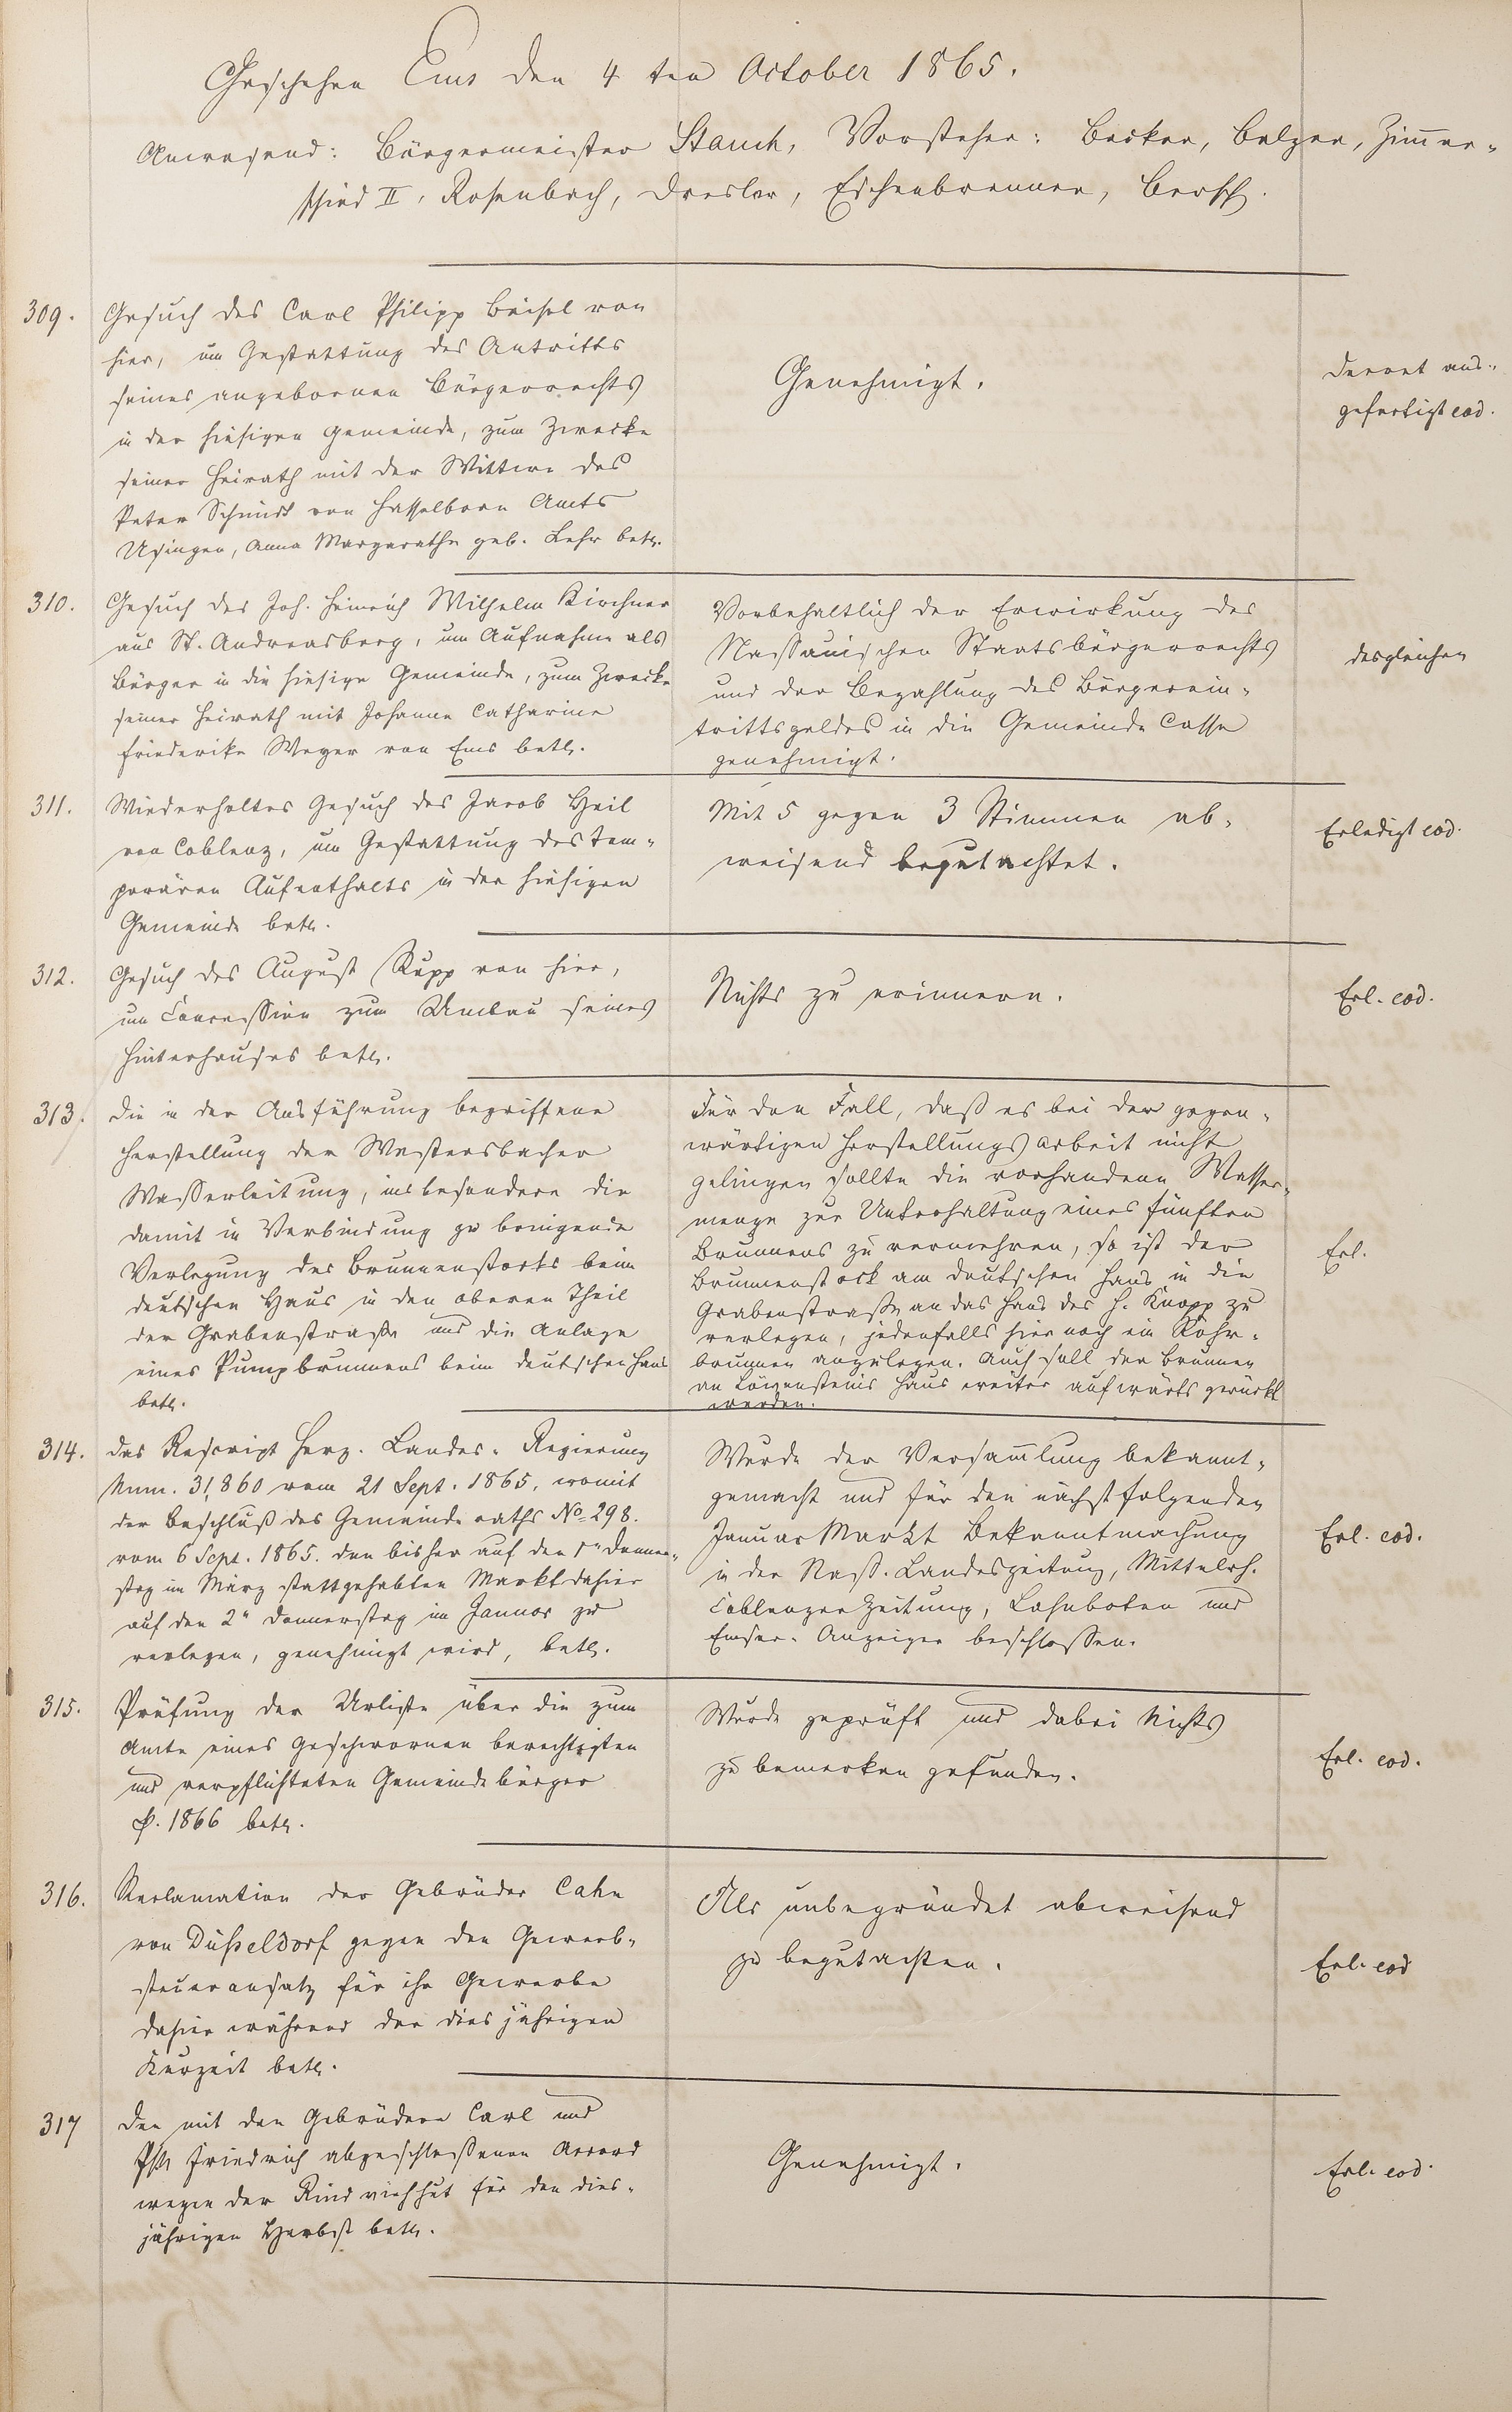 Geschehen Ems den 4ten October 1865.
Anwesend: Bürgermeister Stauch, Vorsteher: Becker, Balzer, Zimmer-
schied II, Rosenbach, Dresler, Eschenbrenner, Bersch.
309.
Gesuch des Carl Philipp Beisel von
hier, um Gestattung des Antritts
seines angebornen Bürgerrechts
in der hiesigen Gemeinde, zum Zwecke
seiner Heirath mit der Wittwe des
Peter Schmidt von Hasselborn Amts
Usingen, Anna Margarathe geb. Lehr betr.
Genehmigt.
Decret aus-
gefertigt eod.
310.
Gesuch des Joh. Heinrich Wilhelm Kirchner
aus St. Andreasberg, um Aufnahme als
Bürger in die hiesige Gemeinde, zum Zwecke
seiner Heirath mit Johanne Catharine
Friederike Weyer von Ems betr.
Vorbehaltlich der Erwirkung des
Nassauischen Staatsbürgerrechts
und der Bezahlung des Bürgerein-
trittsgeldes in die Gemeinde Casse
genehmigt.
desgleichen
311.
Wiederholtes Gesuch des Jacob Heil
von Coblenz, um Gestattung des tem-
porären Aufenthalts in der hiesigen
Gemeinde betr.
Mit 5 gegen 3 Stimmen ab-
weisend begutachtet.
Erledigt eod.
312.
Gesuch des August Rupp von hier,
um Concession zum Umbau seines
Hinterhauses betr.
Nichts zu erinnern.
Erl. eod.
313.
Die in der Ausführung begriffene
Herstellung der Westersbacher
Wasserleitung, insbesondere die
damit in Verbindung zu bringende
Verlegung des Brunnenstocks beim
deutschen Haus in den oberen Theil
der Grabenstraße und die Anlage
eines Pumpbrunnens beim deutschen Haus
betr.
Für den Fall, daß es bei der gegen-
wärtigen Herstellungsarbeit nicht
gelingen sollte die vorhandene Wasser-
menge zur Unterhaltung eines fünften
Brunnens zu vermehren, so ist der
Brunnenstock am deutschen Haus in die
Grabenstraße an das Haus des H. Knopp zu
verlegen, jedenfalls hier noch ein Rohr-
brunnen anzulegen. Auch soll der Brunnen
an Löwensteins Haus weiter aufwärts gerückt
werden.
Erl.
314.
Das Rescript Herz. Landes-Regierung
Num. 31,860 vom 21 Sept. 1865, womit
der Beschluß des Gemeinderaths No 298.
vom 6 Sept. 1865. den bisher auf den 1n Donner-
stag im März stattgehabten Markt dahier
auf den 2n Donnerstag im Januar zu
verlegen, genehmigt wird, betr.
Wurde der Versam̄lung bekannt-
gemacht und für den nächstfolgenden
Januar Markt Bekanntmachung
in der Nass. Landeszeitung, Mittelrh.
Coblenzer Zeitung, Lahnboten und
Emser-Anzeiger beschlossen.
Erl. eod.
315.
Prüfung der Urliste über die zum
Amte eines Geschwornen berechtigten
und verpflichteten Gemeindebürger
p. 1866 betr.
Wurde geprüft und dabei Nichts
zu bemerken gefunden.
Erl. eod.
316.
Reclamation der Gebrüder Cahn
von Düsseldorf gegen den Gewerb-
steueransatz für ihr Gewerbe
dahier während der diesjährigen
Kurzeit betr.
Als unbegründet abweisend
zu begutachten.
Erl. eod
317
Den mit den Gebrüdern Carl und
Friedrich abgeschlossenen Accord
wegen der Rindviehhut für den dies-
jährigen Herbst betr.
Genehmigt.
Erl. eod.